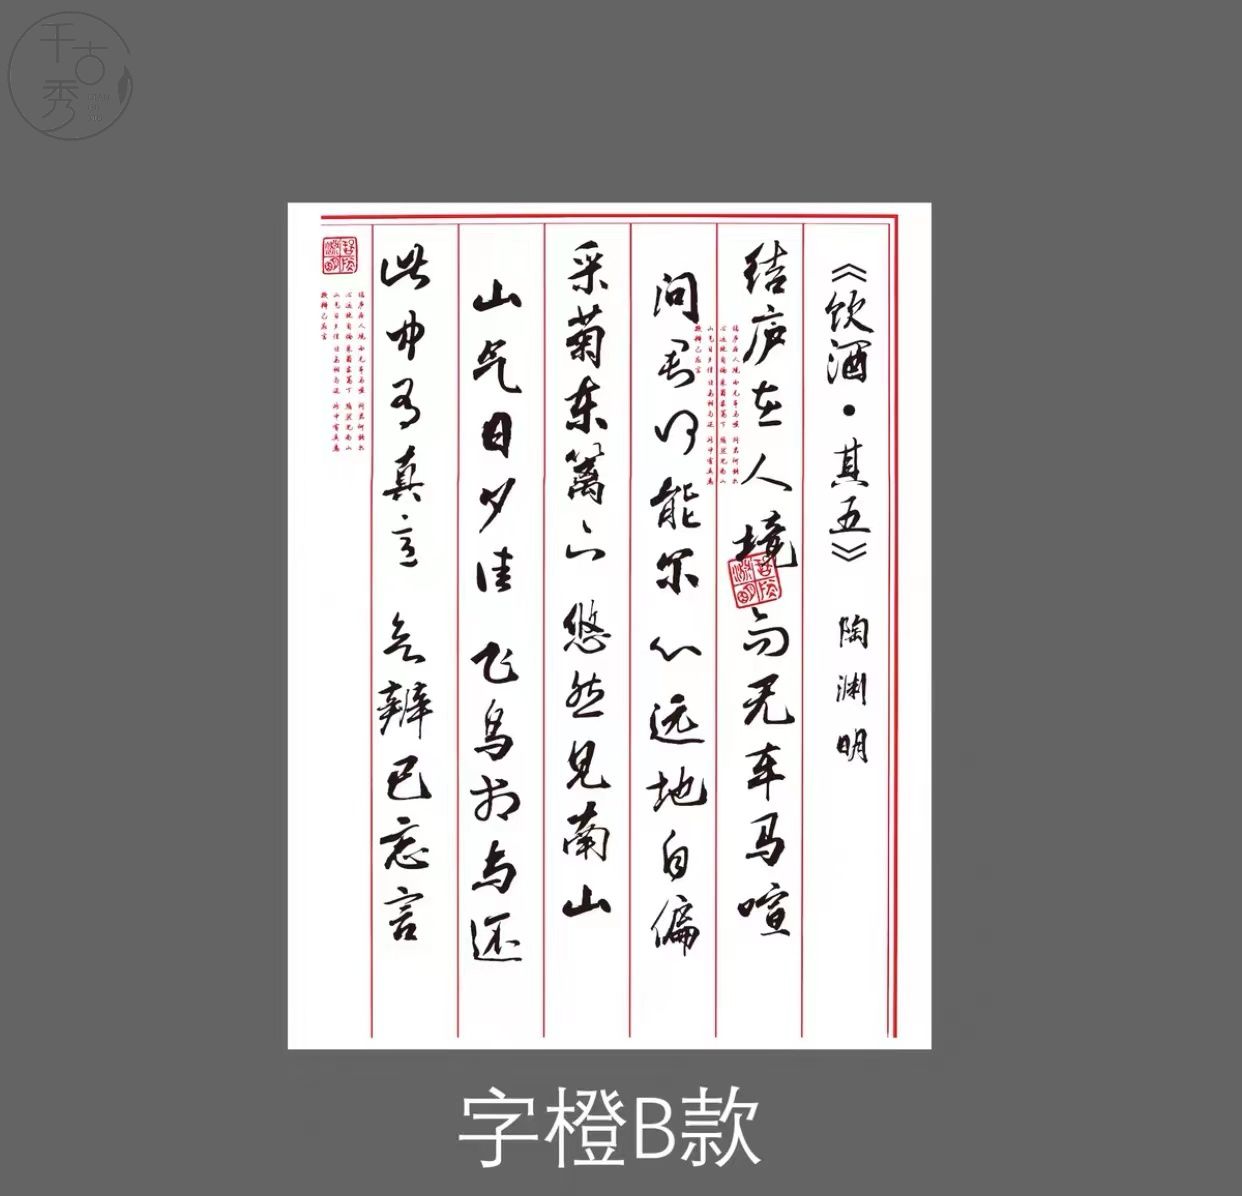 千古秀
《饮酒·其五》 陶渊明
结庐在人境 而无车马喧
问君何能尔 心远地自偏
采菊东篱下 悠然见南山
山气日夕佳 飞鸟相与还
此中有真意 欲辨已忘言
字橙B款